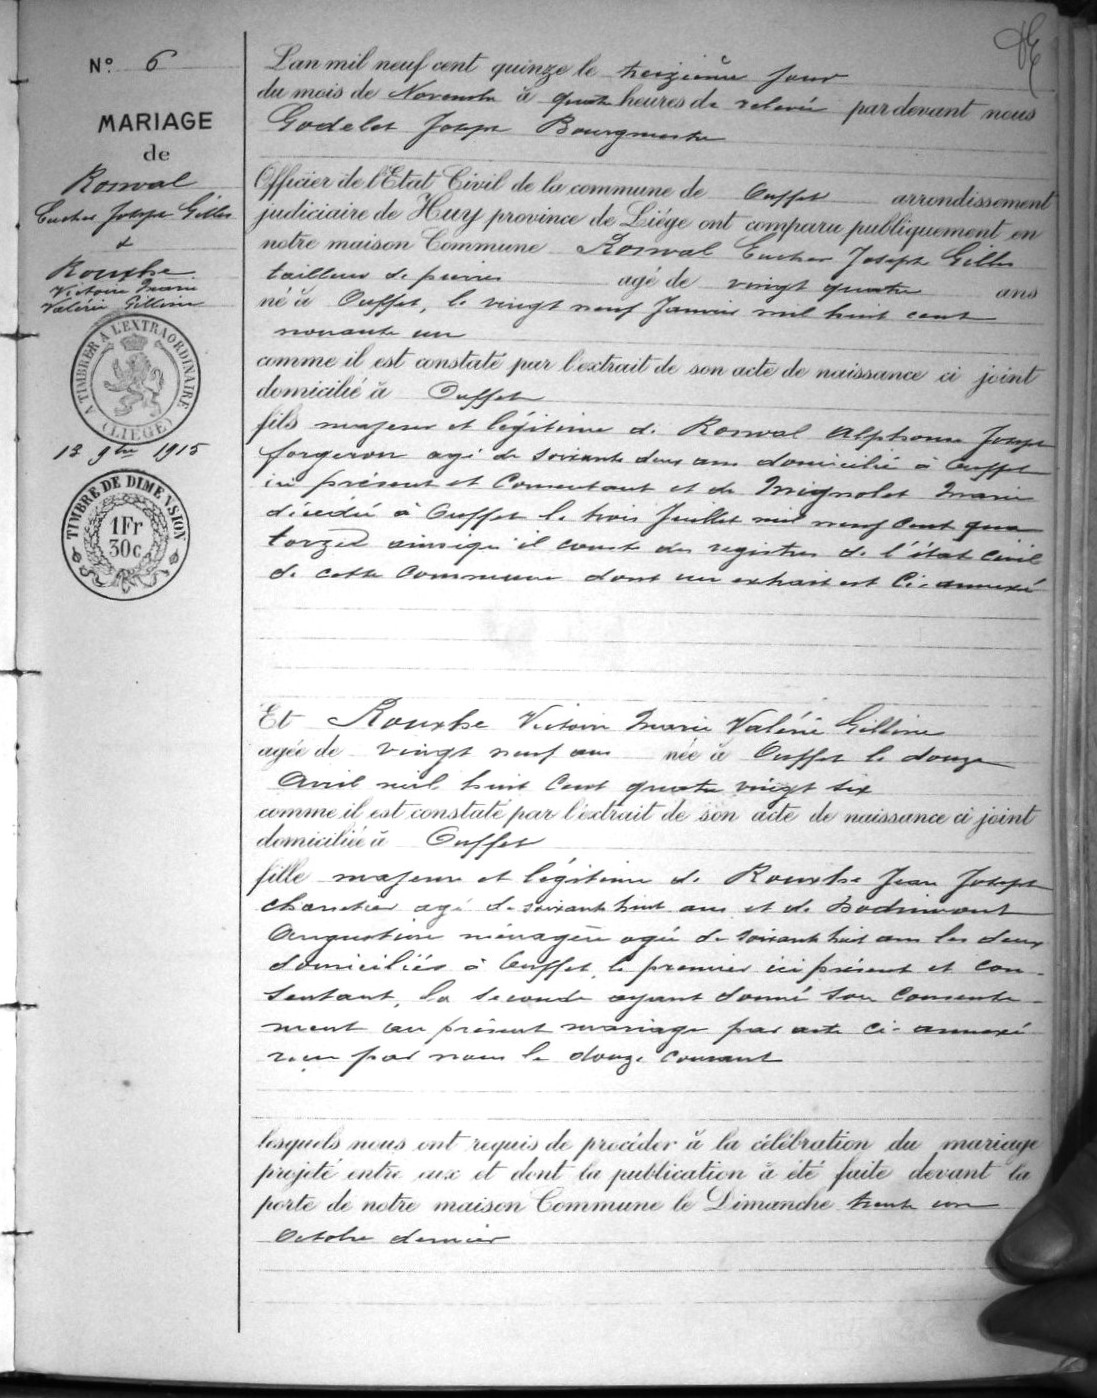 N° 6
MARIAGE
de
Ronval
Eucher Joseph Gilles
&
Rouxhe
Victoire Marie
Valérie Gilline
A TIMBRER A L'EXTRAORDINAIRE
(LIEGE)
13 9bre 1915
TIMBRE DE DIMENSION
1Fr
30c
L'an mil neuf cent quinze le treizième jour
du mois de Novembre à quatre heures de relevée par devant nous
Godelet Joseph Bourgmestre
Officier de l'Etat Civil de la commune de Ouffet arrondissement
judiciaire de Huy province de Liége ont comparu publiquement en
notre maison Commune Ronval Eucher Joseph Gilles
tailleur de pierres agé de vingt quatre ans
né à Ouffet, le vingt neuf Janvier mil huit cent
nonante un
comme il est constaté par l'extrait de son acte de naissance ci joint
domicilié à Ouffet
fils majeur et légitime de Ronval Alphonse Joseph
forgeron agé de soixante deux ans domicilié à Ouffet
ici présent et Consentant et de Mignolet Marie
décédée à Ouffet le trois Juillet mil neuf Cent qua
torze ainsi qu'il conste des registres de l'état Civil
de cette Commune dont un extrait est Ci-annexé
Et Rouxhe Victoire Marie Valérie Gilline
agée de vingt neuf ans née à Ouffet le douze
Avril mil huit Cent quatre vingt six
comme il est constaté par l'extrait de son acte de naissance ci joint
domiciliée à Ouffet
fille majeure et légitime de Rouxhe Jean Joseph
agé de soixante huit ans et de Bodrimont
Augustine ménagère agée de soixante huit ans les deux
domiciliés à Ouffet, le premier ici présent et con-
sentant, la seconde ayant donné son Consente-
ment au présent mariage par acte Ci-annexé
reçu par nous le douze Courant
lesquels nous ont requis de procéder à la célébration du mariage
projeté entre eux et dont la publication à été faite devant la
porte de notre maison Commune le Dimanche trente un
Octobre dernier